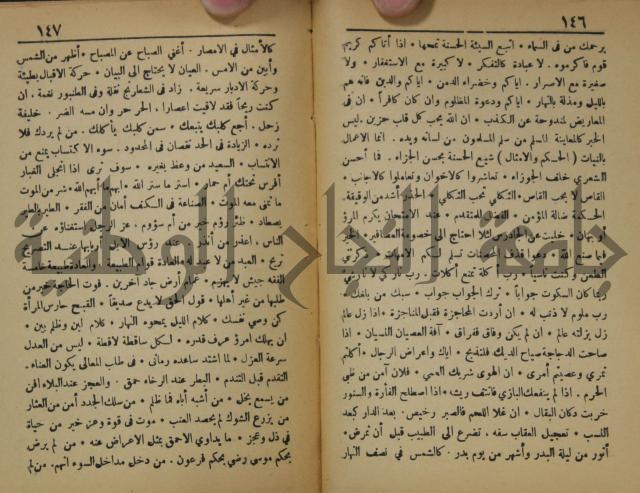 ١٤٦
يرحمك من فى السماء • اتبع السيئة الحسنة تمحها • اذا أتاكم كريم
قوم فاكرموه • لا عبادة كالتفكر • لا كبيرة مع الاستغفار • ولا
صغيرة مع الاصرار • اياكم وخضراء الدمن • اياكم والدين فانه هم
بالليل ومذلة بالنهار • اياكم ودعوة المظلوم وان كان كافراً • ان فى
المعاريض لمندوحة عن الكذب • ان الله يحب كل قلب حزين • ليس
الخبر كالمعاينة المسلم من سلم المسلمون من لسانه ويده • انما الاعمال
بالنيات ( الحكم والامثال ) شيع الحسنة بحسن الجزاء • فما أحسن
الشعرى خلف الجوزاء • تعاشروا كالاخوان وتعاملوا كالاجانب •
القاص لا يحب القاص • الثكلى تحب الثكلى •
الحكمة ضالة المؤمن • الفضل للمتقدم • عند الامتحان يكرم المرؤ
أو يهان •
رب كلمة تمنع أكلات •
ربما كان السكوت جواباً • ترك الجواب جواب • سبك من بلغك •
رب ملوم لا ذنب له • ان أردت المحاجزة فقبل المناجزة • اذا زل عالم
زل بزلته عالم • ان لم يكن وفاق ففراق • آفة العصيان النسيان • اذا
صاحت الدجاجة صياح الديك فلتذبح • اياك واعراض الرجال • أكلتم
تمرى وعصيتم أمرى • ان الهوى شريك العمى • فلان آمن من ظبى
الحرم • اذا لم ينفعك البازى فانتف ريشه • اذا اصطلح الفأرة والسنور
خربت دكان البقال • ان غلا اللحم فالصبر رخيص • بعد الدار كبعد
النسب • تعجيل العقاب سفه • تضرع الى الطبيب قبل أن تمرض •
أنور من ليلة البدر وأشهر من يوم بدر • كالشمس فى نصف النهار
١٤٧
كالأمثال فى الامصار • أغنى الصباح عن المصباح • أظهر من الشمس
وأبين من الامس • العيان لا يحتاج الى البيان • حركة الاقبال بطيئة
وحركة الادبار سريعة • زاد فى الشطرنج بغلة وفى الطنبور نغمة • ان
كنت ريحاً فقد لاقيت اعصارا • الحر حر وان مسه الضر • خليفة
زحل • أجع كلبك يتبعك • سمن كلبك يأكلك • من لم يردك فلا
ترده • الزيادة فى الحد نقصان فى المحدود • سوء الاكتساب يمنع من
الانتساب • السعيد من وعظ بغيره • سوف ترى اذا انجلى الغبار
أفرس تحتك أم حمار • استر ما ستر الله • ابهموا ما أبهم الله • شر من الموت
ما تتمنى معه الموت • الصناعة فى الكف أمان من الفقر • الطير بالطير
يصطاد • ظئر رؤوم خير من أم سؤوم • عز الرجل استغناؤه عن
الناس • اعذر من أنذر •
تريح • العبد من لا عبد له •
طلبها من غير أهلها •
كن وصى نفسك • كلام الليل يمحوه النهار • كلام لين وظلم بين •
لن يهلك امرؤ عرف قدره • لكل ساقطة لاقطة • ليس من العدل
سرعة العزل • لما اشتد ساعده رمانى • فى طلب المعالى يكون العناء •
التقدم قبل التندم • البطر عند الرخاء حمق • والعجز عند البلاء افن
من يسمع يخل • من أشبه أباه فما ظلم • من سلك الجدد أمن من العثار
من يزرع الشوك لم يحصد العنب • موت فى قوة وعز خير من حياة
فى ذل وعجز • ما يداوى الاحمق بمثل الاعراض عنه • من لم يرض
بحكم موسى رضى بحكم فرعون • من دخل مداخل السوء اتهم • من لم
جامعة النجاح الوطنية